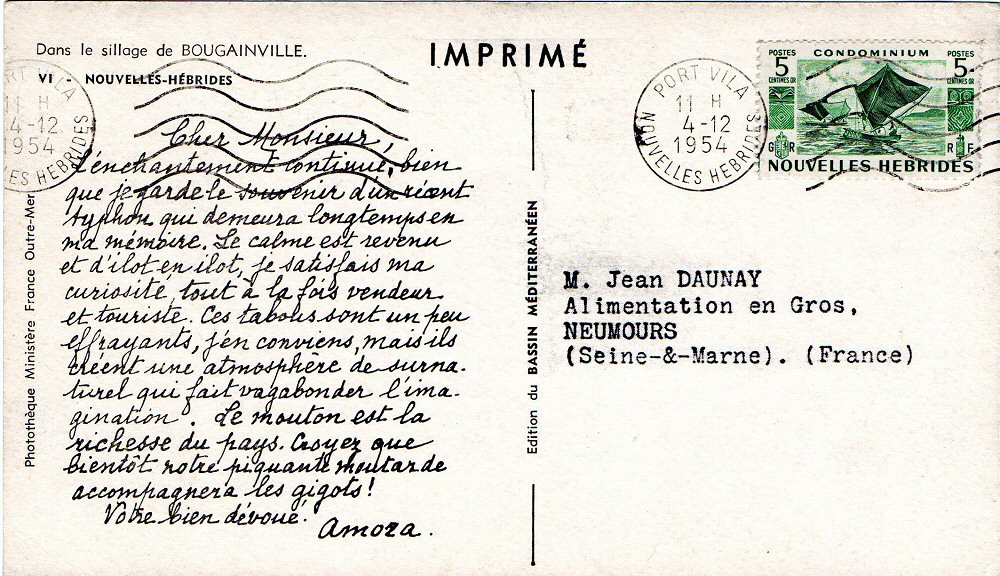 Dans le sillage de BOUGAINVILLE.
VI - NOUVELLES-HÉBRIDES
IMPRIMÉ
ORT VILA
11 H
4-12
1954
ES HEBRIDES
Cher Monsieur,
l'enchantement continue, bien
que je garde le souvenir d'un récent
typhon qui demeura longtemps en
ma mémoire. Le calme est revenu
et d'ilot en ilot, je satisfais ma
curiosité, tout à la fois vendeur
et touriste. Ces tabous sont un peu
effrayants, j'en conviens, mais ils
créent une atmosphère de surna-
turel qui fait vagabonder l'ima-
gination. Le mouton est la
richesse du pays. Croyez que
bientôt notre piquante moutarde
accompagnera les gigots!
Votre bien dévoué.
Amora.
Photothèque Ministère France Outre-Mer
Edition du BASSIN MÉDITERRANÉEN
PORT VILA
11 H
4-12
1954
NOUVELLES HEBRIDES
POSTES CONDOMINIUM POSTES
5 5
CENTIMES OR CENTIMES OR
G R R F
NOUVELLES HEBRIDES
M. Jean DAUNAY
Alimentation en Gros,
NEUMOURS
(Seine-&-Marne). (France)